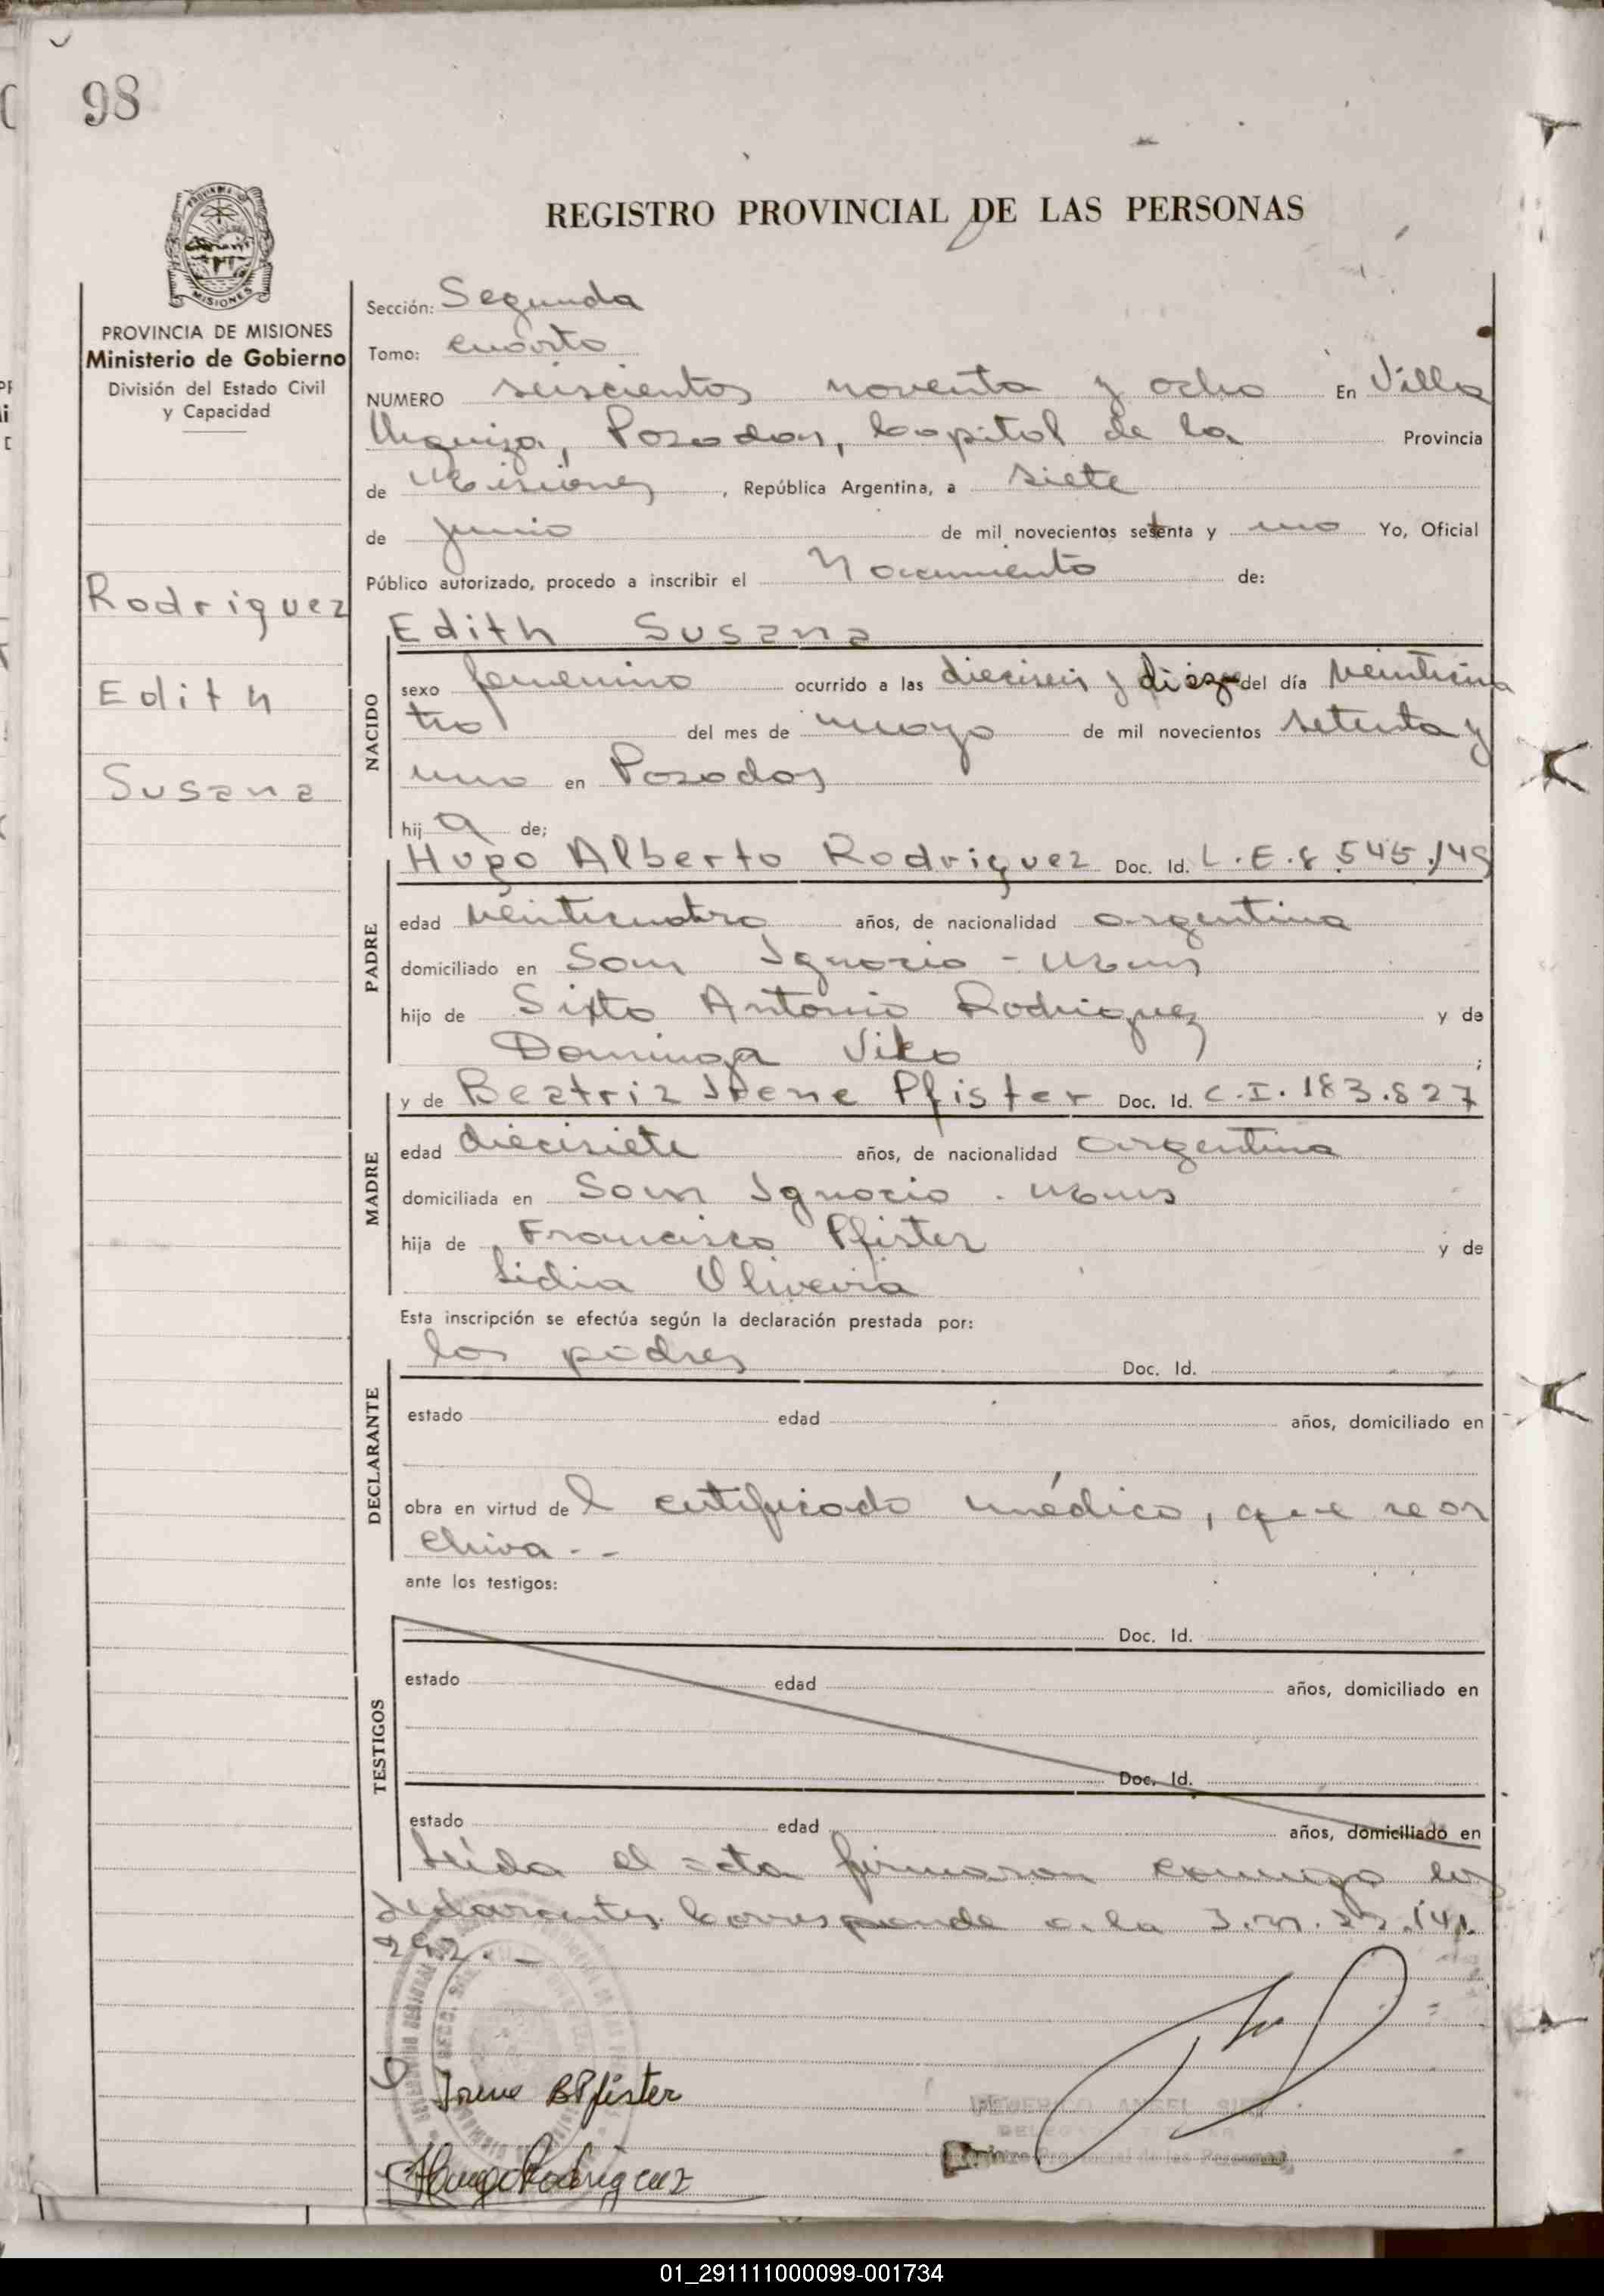 98
REGISTRO PROVINCIAL DE LAS PERSONAS
PROVINCIA DE MISIONES
Ministerio de Gobierno
División del Estado Civil
y Capacidad
Rodriguez
Edith
Susana
Sección: Segunda
Tomo: cuarto
NUMERO seiscientos noventa y ocho En Villa
Urquiza, Posadas, Capital de la Provincia
de Misiones, República Argentina, a siete
de junio de mil novecientos setenta y uno Yo, Oficial
Público autorizado, procedo a inscribir el Nacimiento de:
Edith Susana
NACIDO
sexo femenino ocurrido a las dieciseis y diez del día veinticua
tro del mes de mayo de mil novecientos setenta y
uno en Posadas
hij a de;
PADRE
Hugo Alberto Rodriguez Doc. Id. L.E. 8.545.149
edad veinticuatro años, de nacionalidad argentina
domiciliado en San Ignacio - Mnes
hijo de Sixto Antonio Rodriguez y de
Dominga ;
MADRE
y de Beatriz Irene Pfister Doc. Id. C.I. 183.827
edad diecisiete años, de nacionalidad argentina
domiciliada en San Ignacio - Mnes
hija de Francisco Pfister y de
Lidia Oliveira
Esta inscripción se efectúa según la declaración prestada por:
DECLARANTE
los padres Doc. Id.
estado edad años, domiciliado en
obra en virtud del certificado médico, que se ar
chiva --
ante los testigos:
TESTIGOS
Doc. Id.
estado edad años, domiciliado en
Doc. Id.
estado edad años, domiciliado en
Leída el acta firmaron conmigo los
declarantes. Corresponde a la
Irene B Pfister
Hugo Rodriguez
01_291111000099-001734